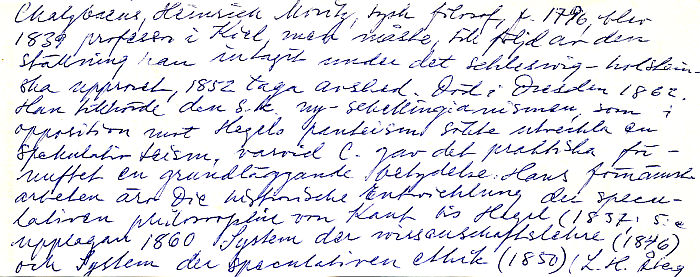 Chalybaeus, Heinrich Moritz, tysk filosof, f. 1796, blev
1839 professor i Kiel, men måste, till följd av den
ställning han intagit under det schleswig-holstein-
ska upproret, 1852 taga avsked. Död i Dresden 1862.
Han tillhörde den s.k. ny-schellingianismen, som i
opposition mot Hegels panteism sökte utveckla en
spekulativ teism, varvid C. gav det praktiska för-
nuftet en grundläggande betydelse. Hans förnämsta
arbeten äro Die historische Entwicklung der specu-
lativen philosophie von Kant bis Hegel (1837; 5:e
upplagan 1860, System der wissenschaftslehre (1846)
och System der speculativen ethik (1850). L. H. Åberg